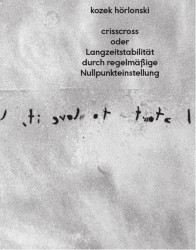 kozek hörlonski
crisscross
oder
Langzeitstabilität
durch regelmäßige
Nullpunkteinstellung